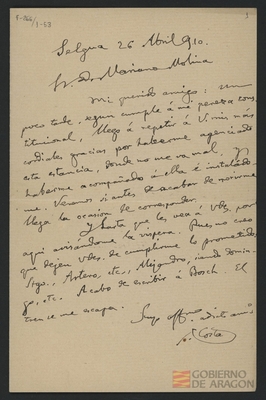 1-53
1
Selgua 26 Abril 910.
Sr. Dn Mariano Molina
Mi querido amigo: un
poco tarde, segun cumple á mi pereza cons
titucional, llego á repetir á V. mis más
cordiales gracias por haberme agenciado
esta estancia, donde no me va mal. Y
haberme acompañado á ella é instalado-
me. Veremos si antes de acabar de morirme
llega la ocasión de corresponder.
Y hasta que les vea á Vdes por
aquí avisándome la víspera. Pues no creo
que dejen Vdes. de cumplirme lo prometido,
Srgo., Artero, etc., Alejandro, siendo domin-
go, etc. Acabo de escribir á Bosch. El
tren se me escapa.
Suyo affmo
Costa
GOBIERNO
DE ARAGON